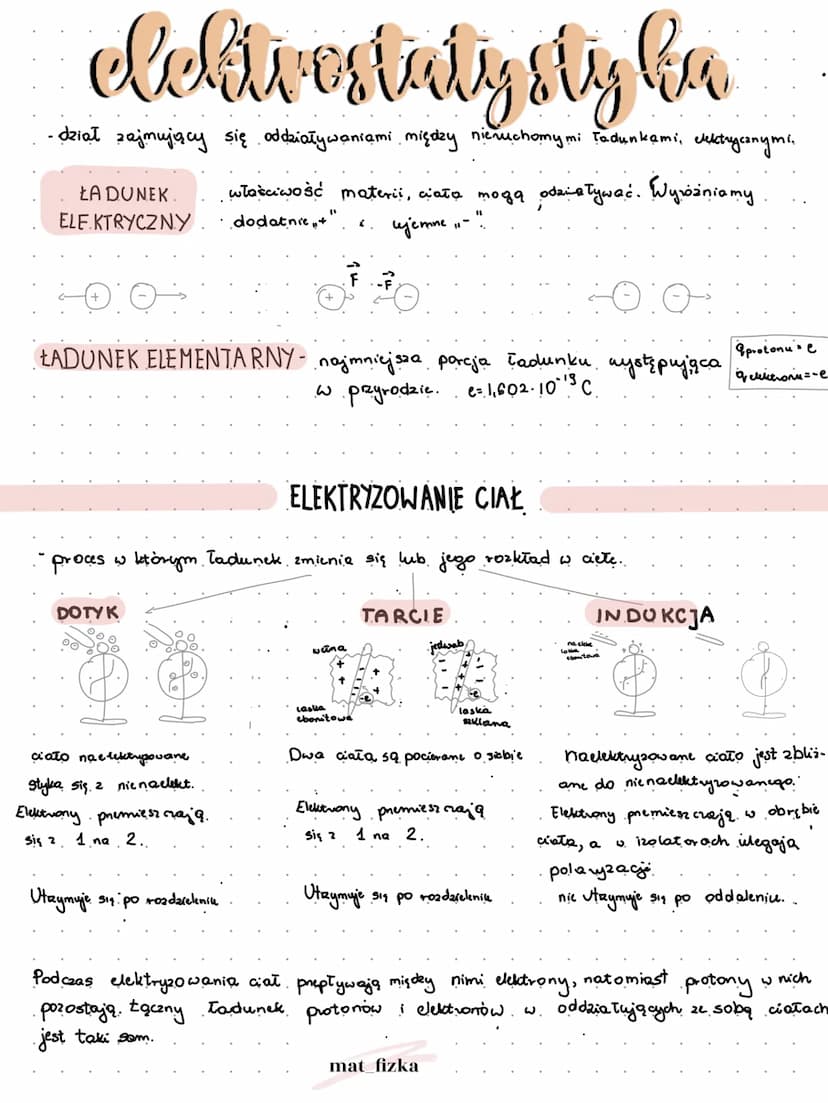 elektrostatystyka
- dział zajmujący się oddziaływaniami między nieruchomymi ładunkami elektrycznymi.
ŁADUNEK ELEKTRYCZNY
właściwość materii, ciała mogą odziaływać. Wyróżniamy
dodatnie „+" i ujemne „-".
+ -
F -F
+ -
- -
ŁADUNEK ELEMENTARNY - najmniejsza porcja ładunku występująca
w przyrodzie. e=1,602·10⁻¹⁹ C
q protonu = e
q elektronu = -e
ELEKTRYZOWANIE CIAŁ
- proces w którym ładunek zmienia się lub jego rozkład w ciele.
DOTYK
TARCIE
INDUKCJA
wełna
laska
ebonitowa
jedwab
laska
szklana
laska
ebonitowa
ciało naelektryzowane
styka się z nienaelekt.
Elektrony przemieszczają
się z 1 na 2.
Utrzymuje się po rozdzieleniu
Dwa ciała są pocierane o siebie
Elektrony przemieszczają
się z 1 na 2.
Utrzymuje się po rozdzieleniu
naelektryzowane ciało jest zbliż-
ane do nienaelektryzowanego.
Elektrony przemieszczają w obrębie
ciała, a w izolatorach ulegają
polaryzacji
nie utrzymuje się po oddaleniu.
Podczas elektryzowania ciał przepływają między nimi elektrony, natomiast protony w nich
pozostają. Łączny ładunek protonów i elektronów w oddziałujących ze sobą ciałach
jest taki sam.
mat_fizka